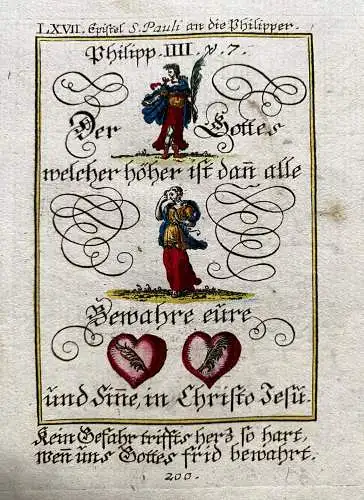 LXVII. Epistel S. Pauli an die Philipper.
Philipp. IIII. v. 7.
Der Gottes
welcher höher ist dañ alle
Bewahre eüre
und Siñe, in Christo Jesu.
Kein Gefahr triffts herz so hart,
weñ uns Gottes frid bewahrt.
200.